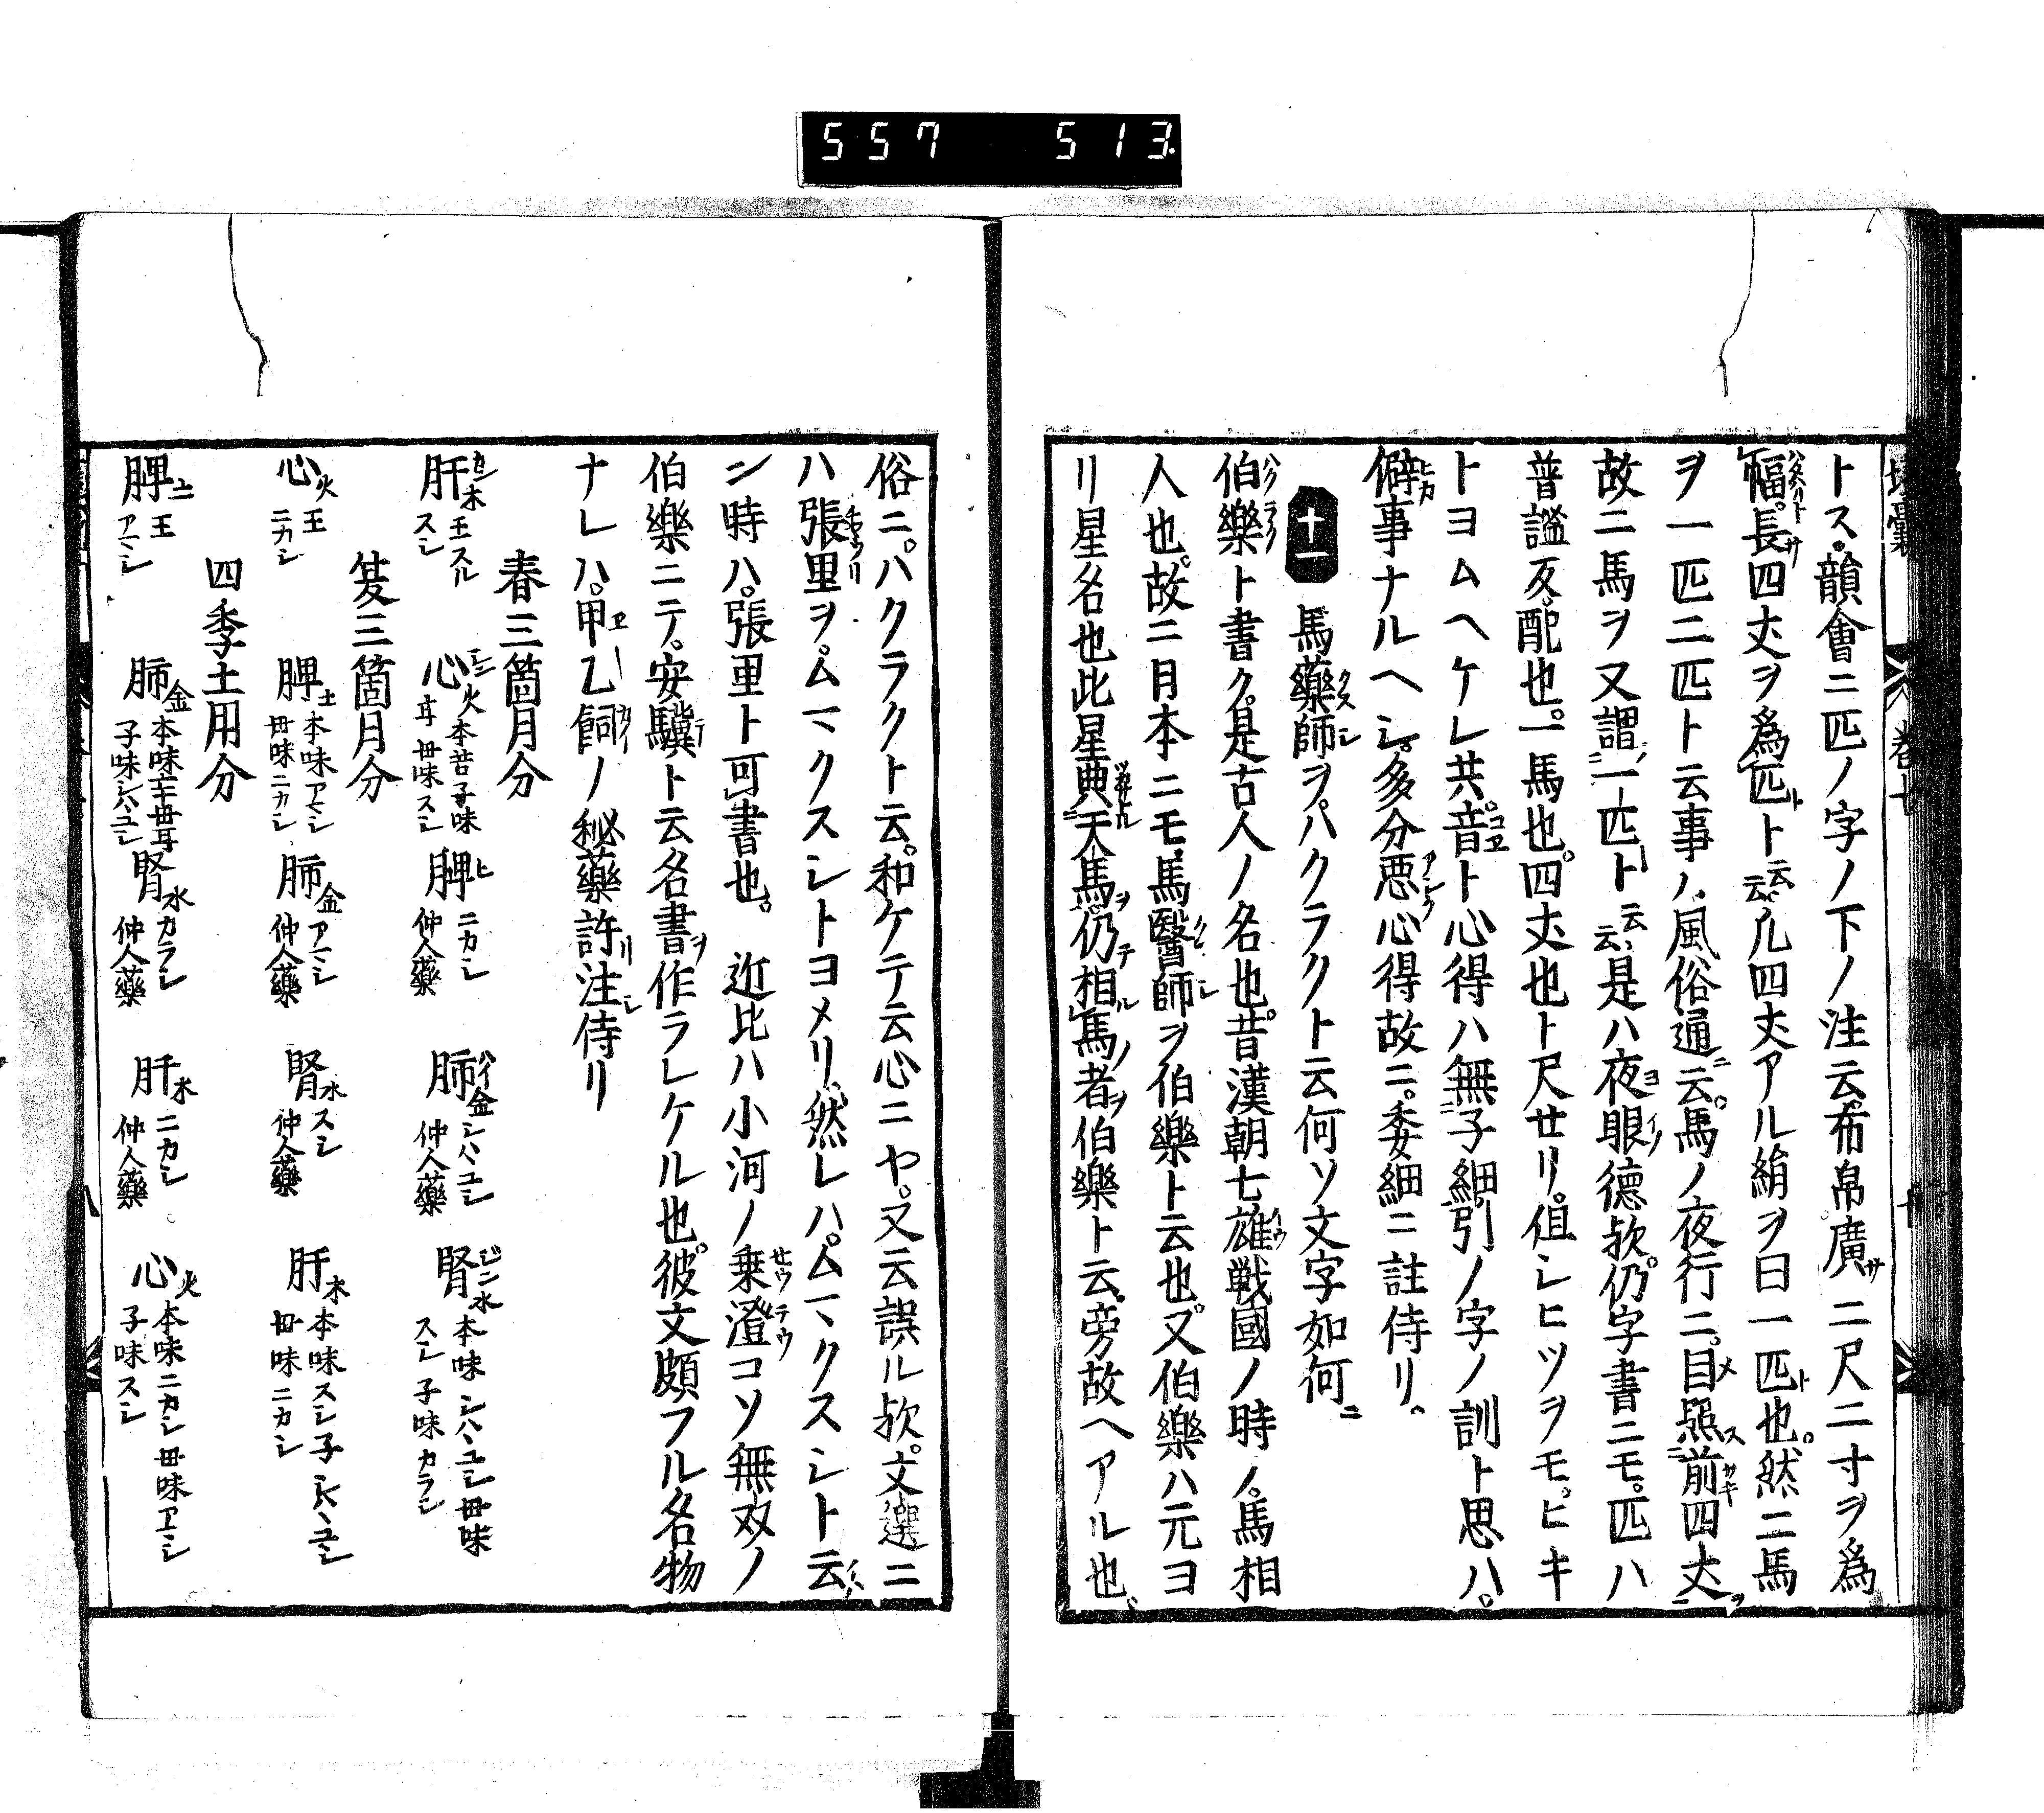 557 513
トス。韻會ニ匹ノ字ノ下ノ注云。布帛廣サ二尺二寸ヲ爲
幅ハタハリト。長サ四丈ヲ爲匹ト云云。凡四丈アル絹ヲ曰一匹ト也。然ニ馬
ヲ一匹二匹ト云事ハ、風俗通ニ云。馬ノ夜行ニ。目メ照ス前サキ四丈ヲ
故ニ馬ヲ又謂一匹ト云云。是ハ夜ヨ眼ノ德欤。仍字書ニモ。匹ハ
普謐反。配也。一馬也。四丈也ト尺セリ。但シヒツヲモ。ヒキ
トヨムヘケレ共。音コヱト心得ハ無子細。引ノ字ノ訓ト思ハ。
僻ヒカ事ナルヘシ。多分悪アシク心得故ニ。委細ニ註侍リ。
十一 馬藥クス師シヲハクラクト云何ソ文字如何ニ
伯ハク樂ラクト書ク。是古人ノ名也。昔漢朝七雄イウ戦國ノ時ノ馬相
人也。故ニ日本ニモ馬醫クス師シヲ伯樂ト云也。又伯樂ハ元ヨ
リ星名也此星典天馬ヲ。仍テ相ル馬ノ者ヲ伯樂ト云。旁故ヘアル也。
俗ニ。ハクラクト云。和ケテ云心ニヤ。又云誤ル欤。文選ニ
ハ張里ヲ。ムマクスシトヨメリ。然レハ。ムマクスシト云ハ
ン時ハ。張里ト可書也。 近比ハ小河ノ乗セウ澄テウコソ無双ノ
伯樂ニテ。安驥キト云名書ヲ作ラレケル也。彼文頗フル名物
ナレハ。甲乙飼カイノ秘藥許リ注シ侍リ
春三箇月分
肝カン木 王スルスシ 心シン火 本苦子味甘 毋味スシ 脾ヒ ニカシ 仲人藥 肺ハイ金 シハヽユシ 仲人藥 腎ジン水 本味シハヽユシ毋味スシ 子味カラシ
夏三箇月分
心火 王ニカシ 脾土 本味アマシ毋味ニカシ 肺金 アマシ 仲人藥 腎水 スシ 仲人藥 肝木 本味スシ子シハヽユシ毋味ニカシ
四季土用分
脾土 王アマシ 肺金 本味辛毋甘子味シハヽユシ 腎水 カラシ 仲人藥 肝木 ニカシ 仲人藥 心火 本味ニカシ毋味アマシ子味スシ